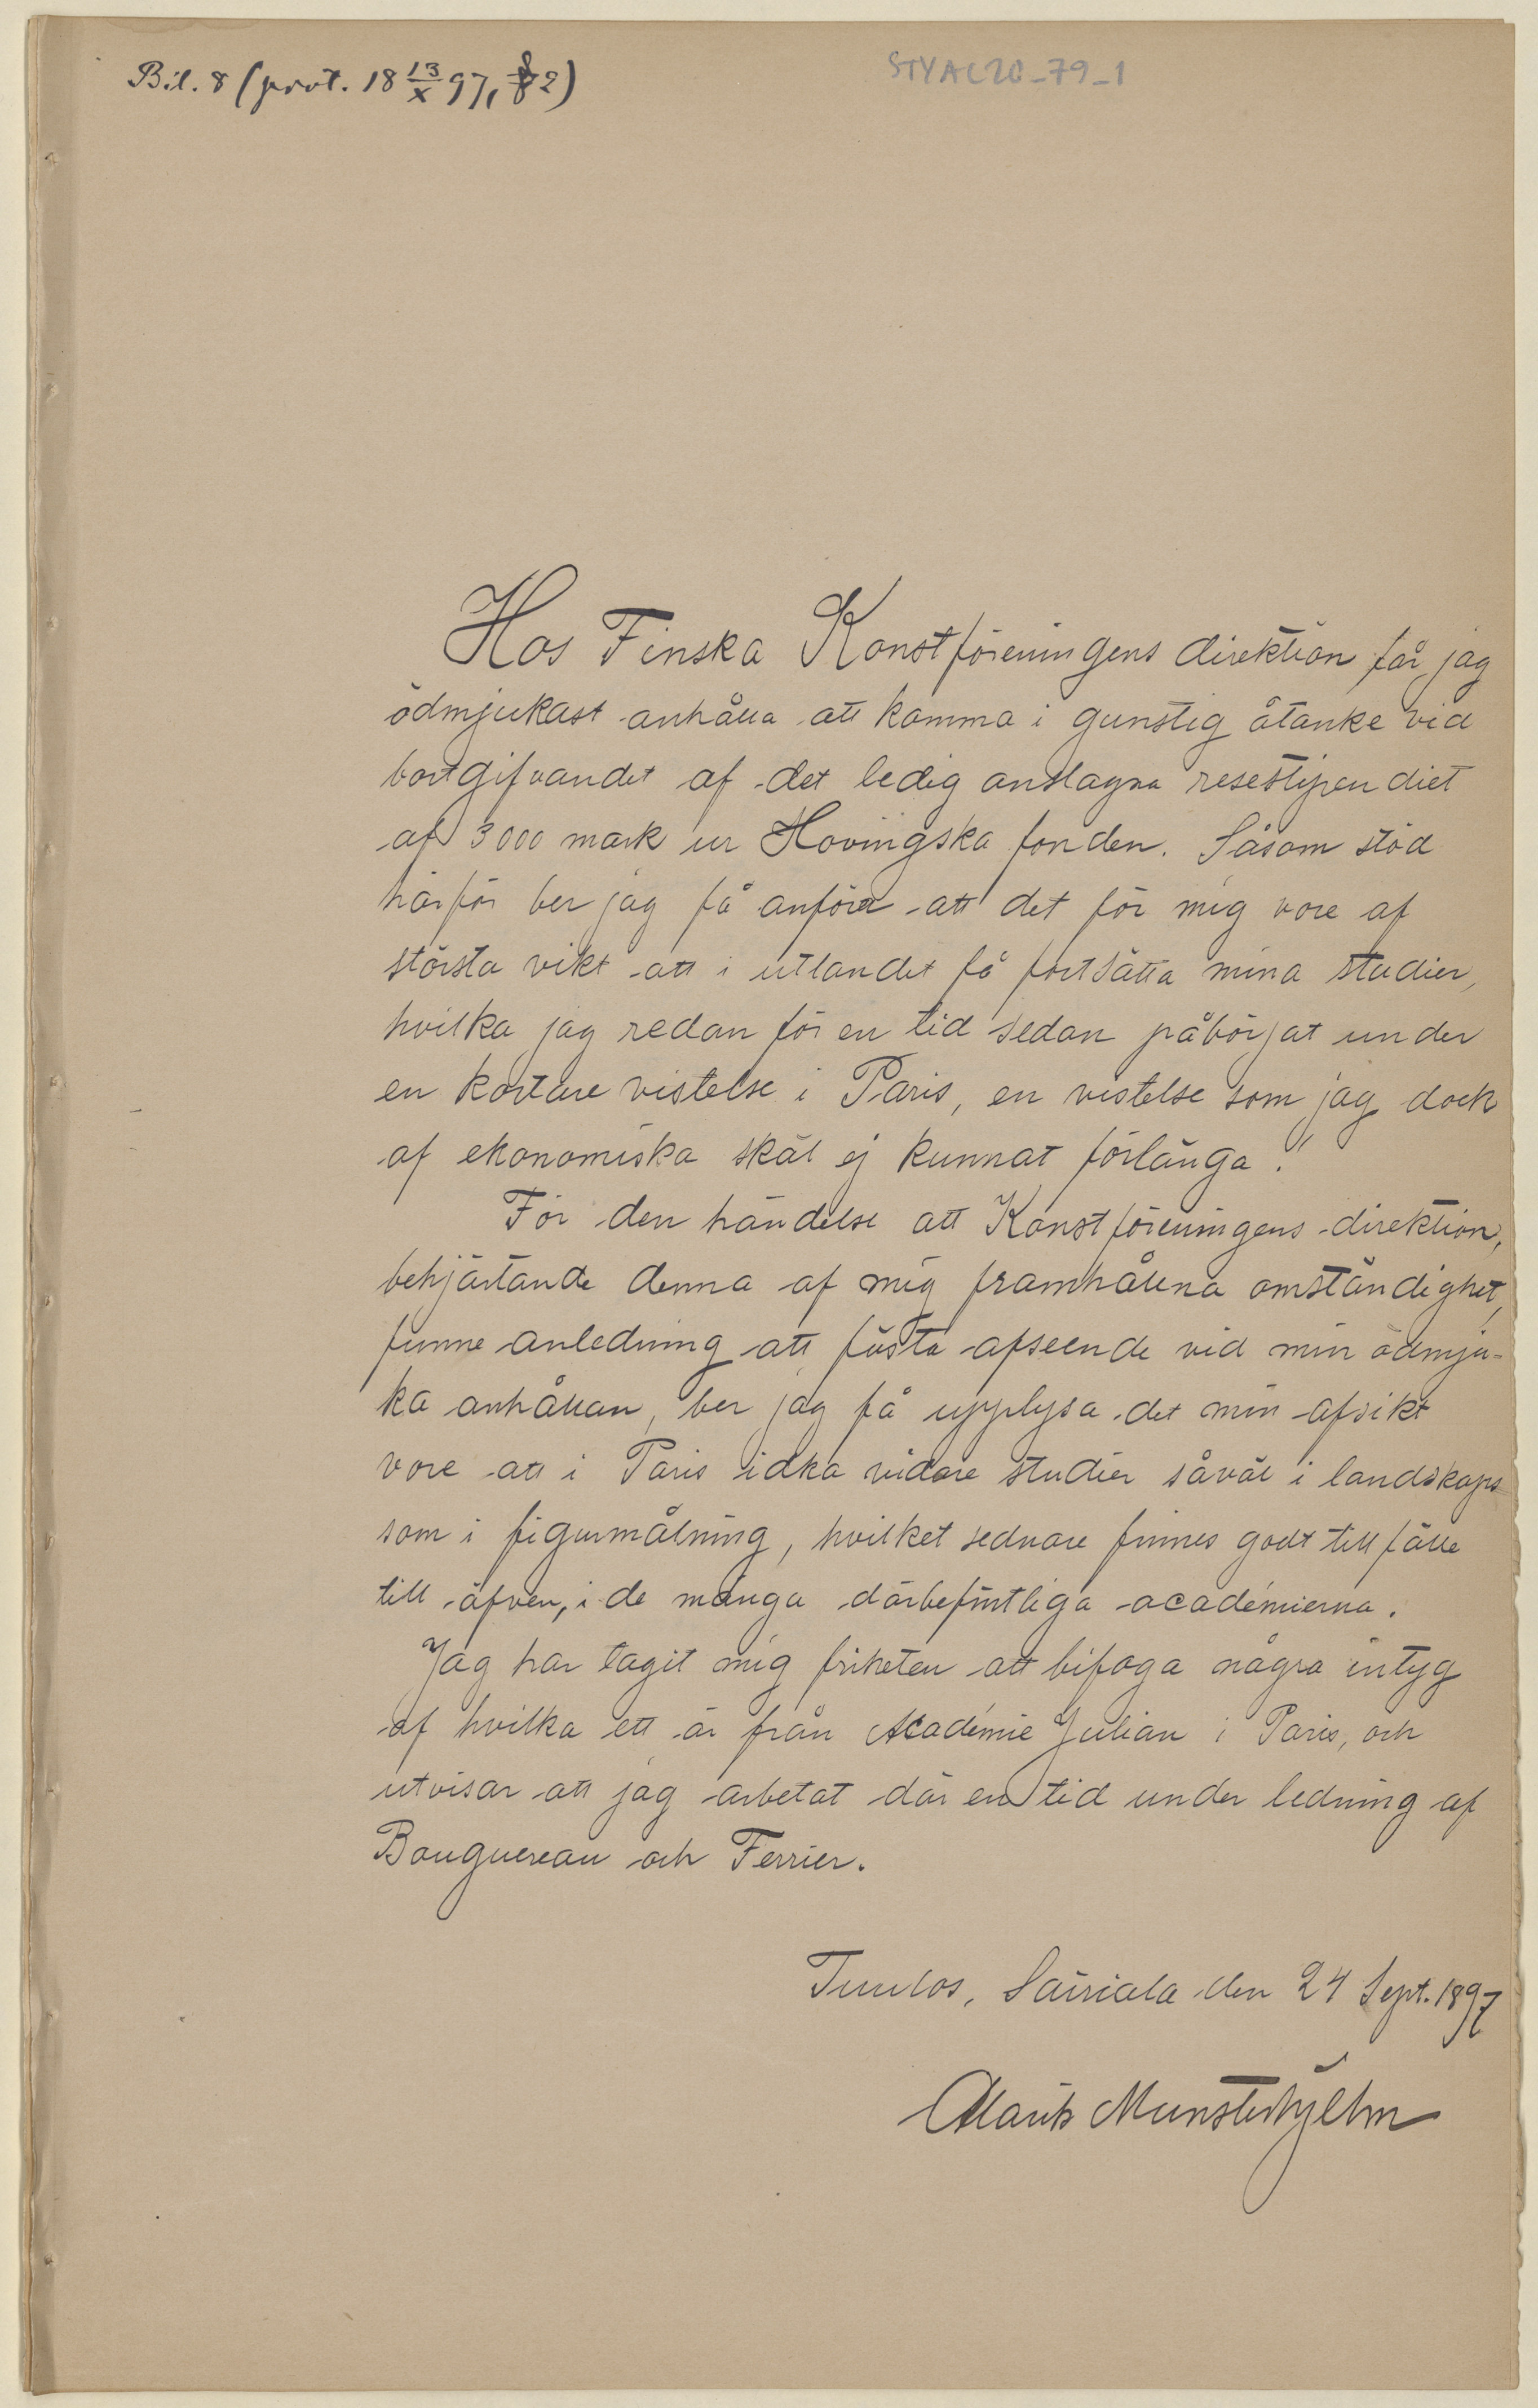 Bil. 8 (prot. 18 13/X 97, § 2)
STYAC20_79_1
Hos Finska Konstföreningens direktion får jag
ödmjukast anhålla att komma i gunstig åtanke vid
bortgifvandet af det ledig anslagna resestipendiet
af 3000 mark ur Hovingska fonden. Såsom stöd
härför ber jag få anföra att det för mig vore af
största vikt att i utlandet få fortsätta mina studier,
hvilka jag redan för en tid sedan påbörjat under
en kortare vistelse i Paris, en vistelse som jag dock
af ekonomiska skäl ej kunnat förlänga.
För den händelse att Konstföreningens direktion,
behjärtande denna af mig framhållna omständighet,
funne anledning att fästa afseende vid min ödmju-
ka anhållan, ber jag få upplysa det min afsikt
vore att i Paris idka vidare studier såväl i landskaps
som i figurmålning, hvilket sednare finnes godt tillfälle
till äfven, i de många därbefintliga académierna.
Jag har tagit mig friheten att bifoga några intyg
af hvilka ett är från Académie Julian i Paris, och
utvisar att jag arbetat där en tid under ledning af
Bouguereau och Ferrier.
Tuulos, Säiriala den 24 Sept. 1897
Alarik Munsterhjelm